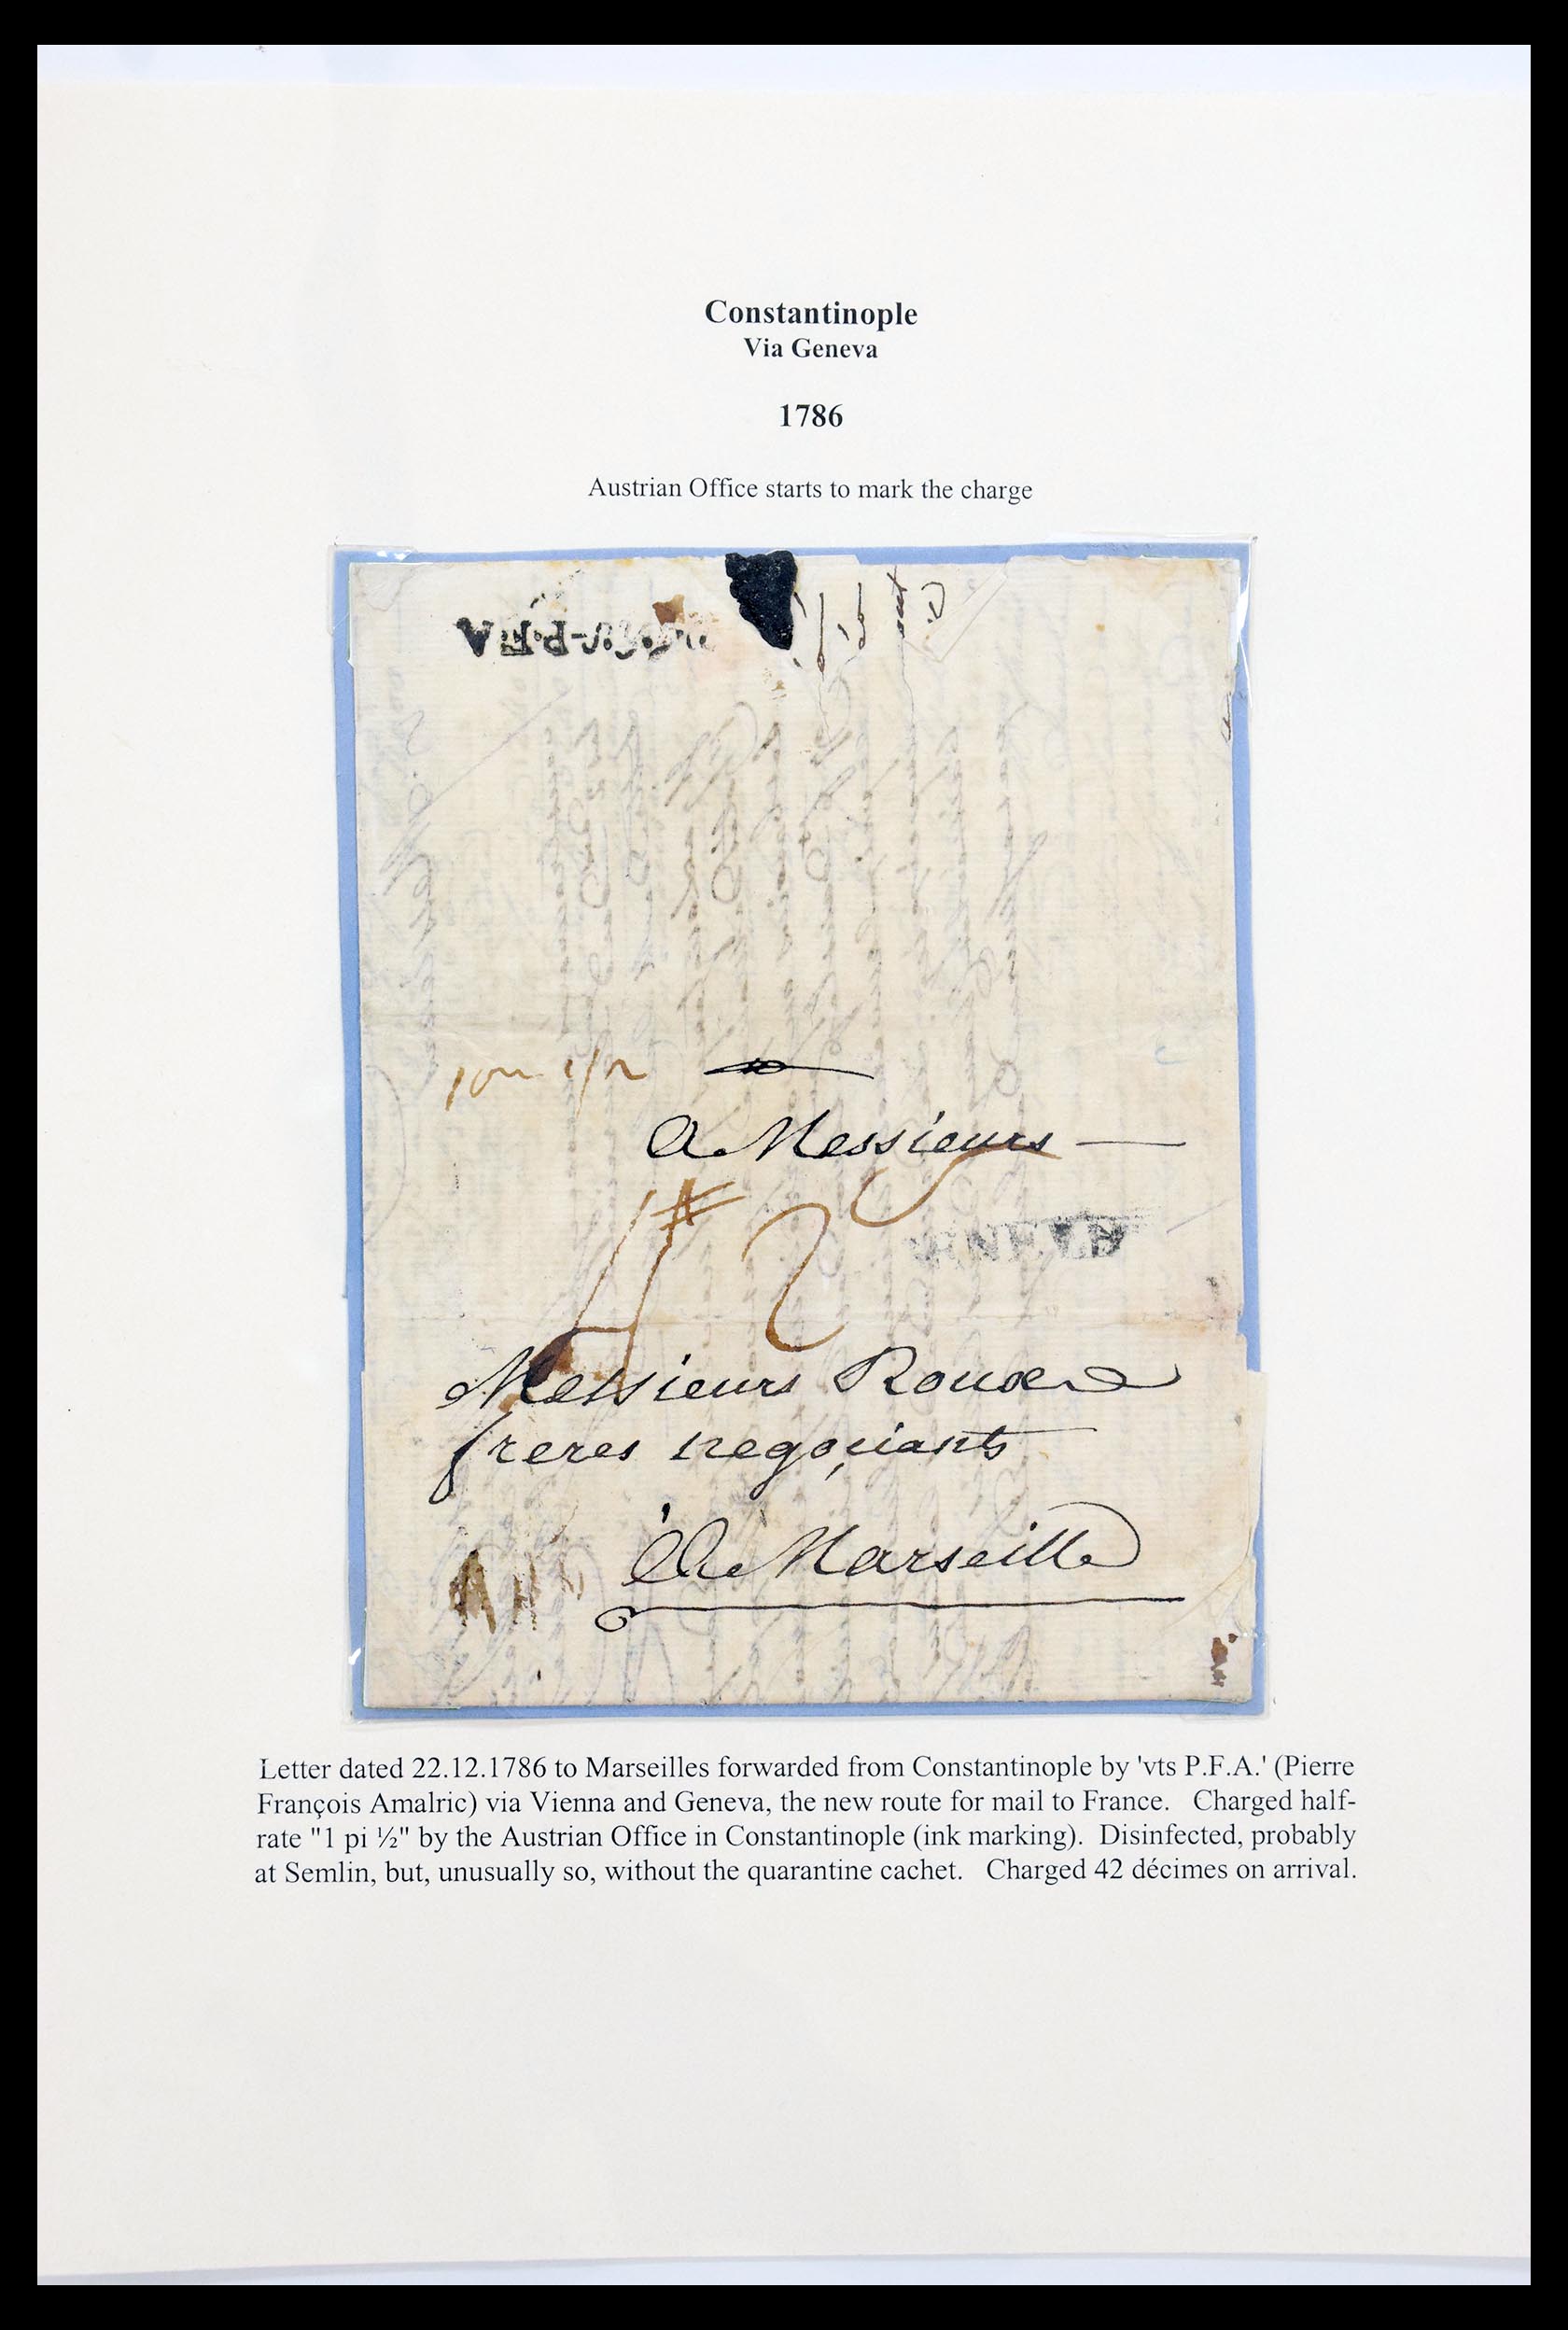 Constantinople
Via Geneva
1786
Austrian Office starts to mark the charge
A Messieurs
42
Messieurs Roux
freres negoçiants
A Marseille
Letter dated 22.12.1786 to Marseilles forwarded from Constantinople by 'vts P.F.A.' (Pierre
François Amalric) via Vienna and Geneva, the new route for mail to France. Charged half-
rate "1 pi ½" by the Austrian Office in Constantinople (ink marking). Disinfected, probably
at Semlin, but, unusually so, without the quarantine cachet. Charged 42 décimes on arrival.